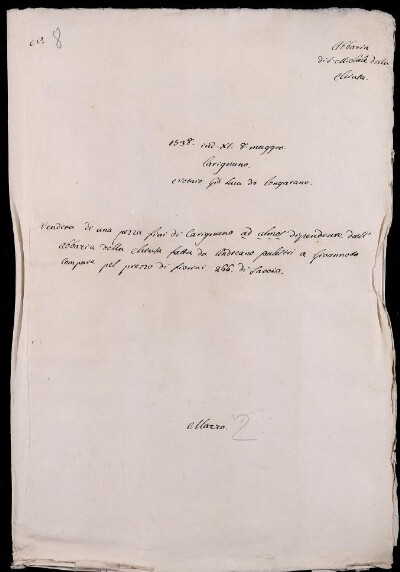 N. 8
Abbazia
di S. Michele della
Chiusa.
1538. ind. XI. 8. maggio
Carignano
Notaro Gio Luca de Longarano.
Vendita di una pezza fini di Carignano ad ulmos dipendente dall'
abbazia della Chiusa fatta da a Giovanneto
compare pel prezzo di fiorini 266. di Savoia.
Mazzo. 2